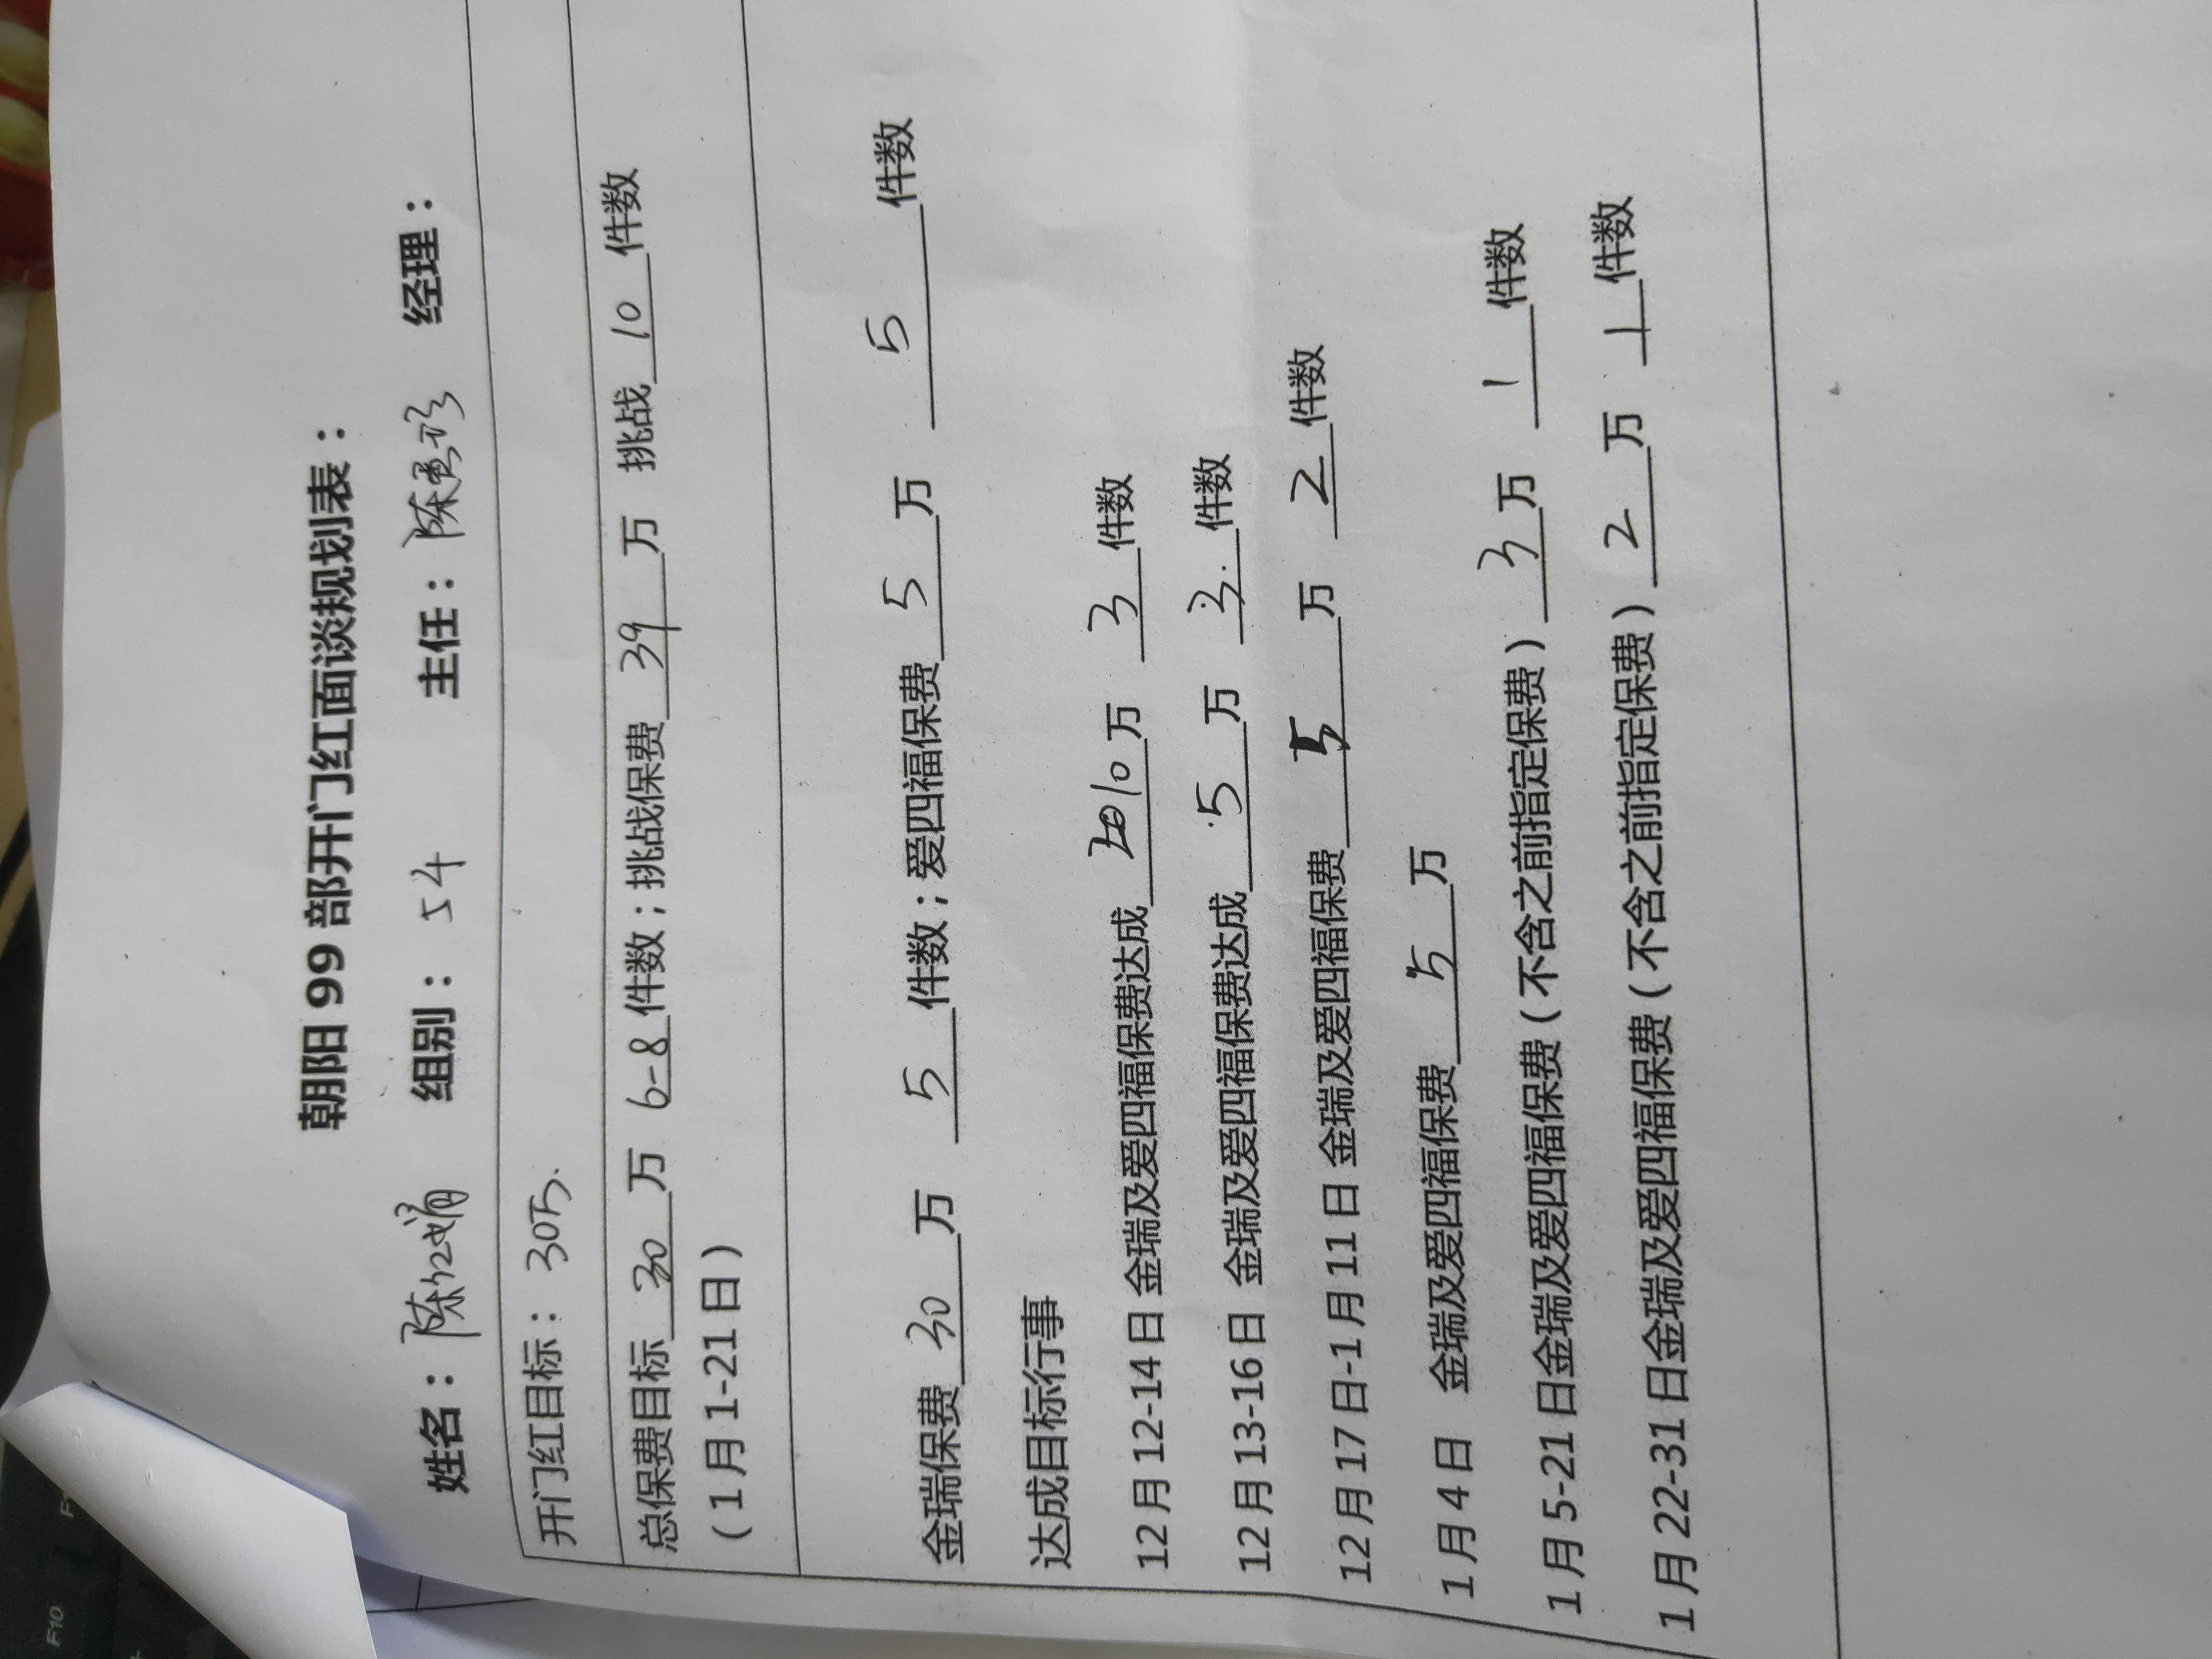 朝阳 99 部开门红面谈规划表：
姓名：陈红娟 组别：54 主任：陈 经理：
开门红目标：30万.
总保费目标 30 万 6-8 件数；挑战保费 39 万 挑战 10 件数
（1月1-21日）
金瑞保费 30 万 5 件数；爱四福保费 5 万 5 件数
达成目标行事
12月12-14日 金瑞及爱四福保费达成 10 万 3 件数
12月13-16日 金瑞及爱四福保费达成 5 万 3 件数
12月17日-1月11日 金瑞及爱四福保费 5 万 2 件数
1月4日 金瑞及爱四福保费 5 万
1月5-21日金瑞及爱四福保费（不含之前指定保费） 3 万 1 件数
1月22-31日金瑞及爱四福保费（不含之前指定保费） 2 万 1 件数
F10